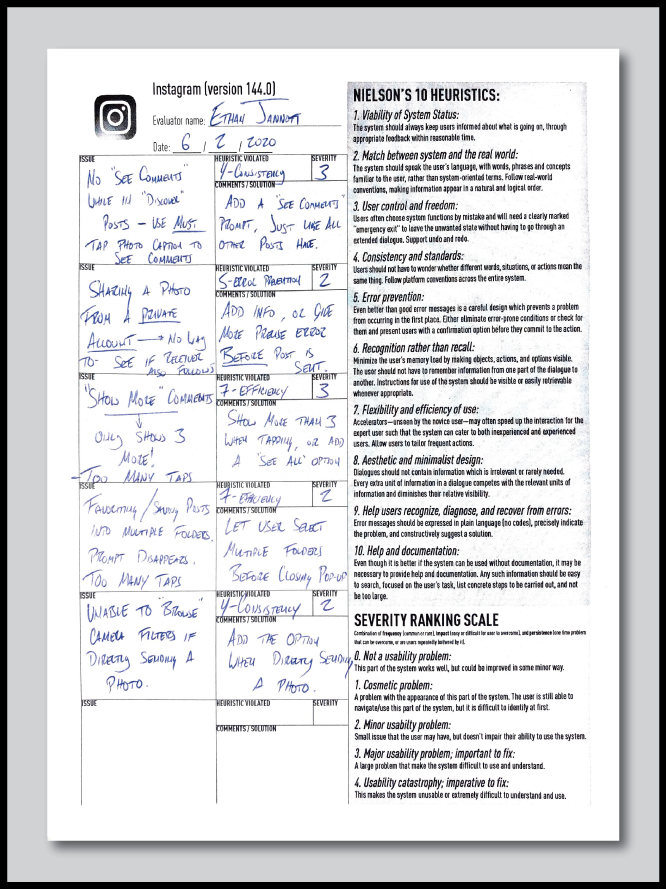 Instagram (version 144.0)
Evaluator name: ETHAN JANNOTT
Date: 6 / 2 / 2020
ISSUE
NO "SEE COMMENTS"
WHILE IN "DISCOVER"
POSTS - USE MUST
TAP PHOTO CAPTION TO
SEE COMMENTS
HEURISTIC VIOLATED
4-CONSISTENCY
SEVERITY
3
COMMENTS / SOLUTION
ADD A "SEE COMMENTS"
PROMPT, JUST LIKE ALL
OTHER POSTS HAVE.
ISSUE
SHARING A PHOTO
FROM A PRIVATE
ACCOUNT → NO WAY
TO SEE IF RECEIVER
ALSO FOLLOWS
HEURISTIC VIOLATED
5-ERROR PREVENTION
SEVERITY
2
COMMENTS / SOLUTION
ADD INFO, OR GIVE
MORE PRECISE ERROR
BEFORE POST IS
SENT.
ISSUE
"SHOW MORE" COMMENTS
↓
ONLY SHOWS 3
MORE!
- TOO MANY TAPS
HEURISTIC VIOLATED
7-EFFICIENCY
SEVERITY
3
COMMENTS / SOLUTION
SHOW MORE THAN 3
WHEN TAPPING, OR ADD
A "SEE ALL" OPTION
ISSUE
FAVORITING / SAVING POSTS
INTO MULTIPLE FOLDERS.
PROMPT DISAPPEARS.
TOO MANY TAPS
HEURISTIC VIOLATED
7-EFFICIENCY
SEVERITY
2
COMMENTS / SOLUTION
LET USER SELECT
MULTIPLE FOLDERS
BEFORE CLOSING POP-UP
ISSUE
UNABLE TO "BROWSE"
CAMERA FILTERS IF
DIRECTLY SENDING A
PHOTO.
HEURISTIC VIOLATED
4-CONSISTENCY
SEVERITY
2
COMMENTS / SOLUTION
ADD THE OPTION
WHEN DIRECTLY SENDING
A PHOTO.
ISSUE
HEURISTIC VIOLATED
SEVERITY
COMMENTS / SOLUTION
NIELSON'S 10 HEURISTICS:
1. Viability of System Status:
The system should always keep users informed about what is going on, through
appropriate feedback within reasonable time.
2. Match between system and the real world:
The system should speak the user's language, with words, phrases and concepts
familiar to the user, rather than system-oriented terms. Follow real-world
conventions, making information appear in a natural and logical order.
3. User control and freedom:
Users often choose system functions by mistake and will need a clearly marked
"emergency exit" to leave the unwanted state without having to go through an
extended dialogue. Support undo and redo.
4. Consistency and standards:
Users should not have to wonder whether different words, situations, or actions mean the
same thing. Follow platform conventions across the entire system.
5. Error prevention:
Even better than good error messages is a careful design which prevents a problem
from occurring in the first place. Either eliminate error-prone conditions or check for
them and present users with a confirmation option before they commit to the action.
6. Recognition rather than recall:
Minimize the user's memory load by making objects, actions, and options visible.
The user should not have to remember information from one part of the dialogue to
another. Instructions for use of the system should be visible or easily retrievable
whenever appropriate.
7. Flexibility and efficiency of use:
Accelerators—unseen by the novice user—may often speed up the interaction for the
expert user such that the system can cater to both inexperienced and experienced
users. Allow users to tailor frequent actions.
8. Aesthetic and minimalist design:
Dialogues should not contain information which is irrelevant or rarely needed.
Every extra unit of information in a dialogue competes with the relevant units of
information and diminishes their relative visibility.
9. Help users recognize, diagnose, and recover from errors:
Error messages should be expressed in plain language (no codes), precisely indicate
the problem, and constructively suggest a solution.
10. Help and documentation:
Even though it is better if the system can be used without documentation, it may be
necessary to provide help and documentation. Any such information should be easy
to search, focused on the user's task, list concrete steps to be carried out, and not
be too large.
SEVERITY RANKING SCALE
Combination of frequency (common or rare), impact (easy or difficult for user to overcome), and persistence (one time problem
that can be overcome, or are users repeatedly bothered by it).
0. Not a usability problem:
This part of the system works well, but could be improved in some minor way.
1. Cosmetic problem:
A problem with the appearance of this part of the system. The user is still able to
navigate/use this part of the system, but it is difficult to identify at first.
2. Minor usabilty problem:
Small issue that the user may have, but doesn't impair their ability to use the system.
3. Major usability problem; important to fix:
A large problem that make the system difficult to use and understand.
4. Usability catastrophy; imperative to fix:
This makes the system unusable or extremely difficult to understand and use.